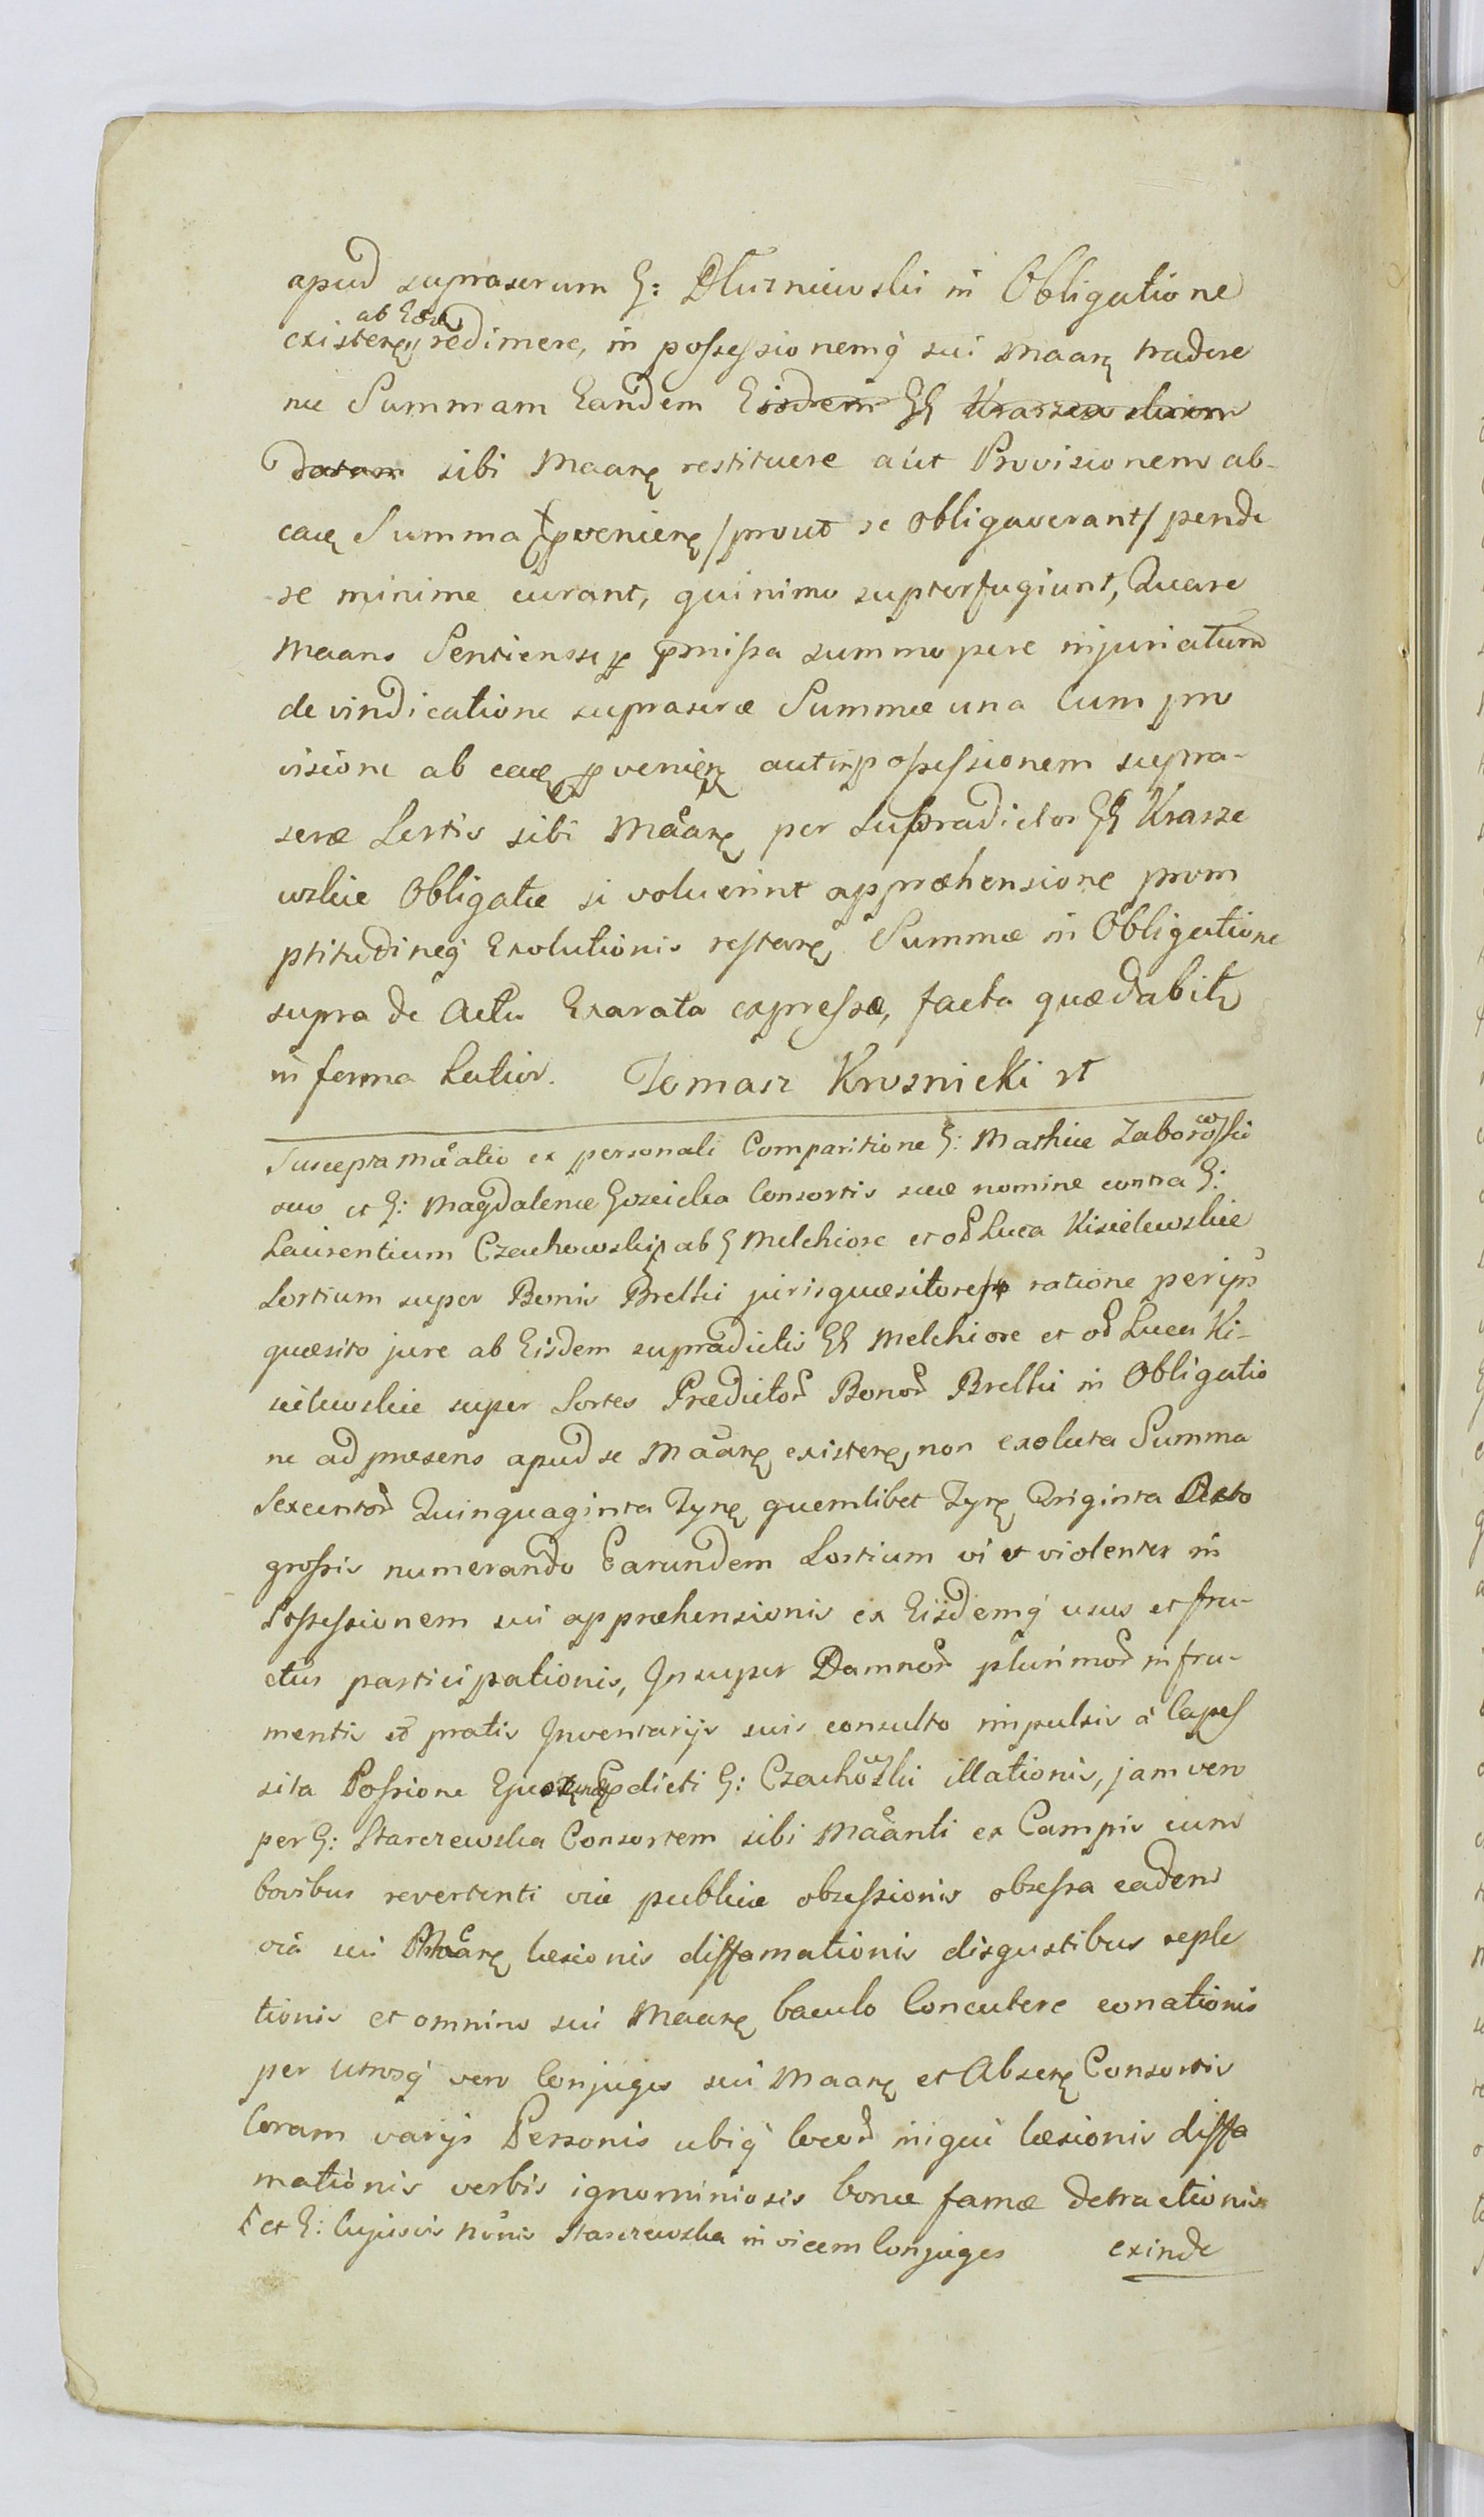 apud suprascrum G: Dłuzniewski in Obligatione
ab Eod
existeñ redimere, in possessionemq̃ sui Maañ tradere
nec Summam Eandem Eisdem GG Kraszewskiem
datam sibi Maañ restituere aut Provisionem ab-
eaq̃ Summa pvenieñ /prout se obligaverant/ pende
re minime curant, quinimo supterfugiunt, Quare
Maans Sentiens se p pmissa summopere injuriatum
de vindicatione suprascræ Summæ una Cum pro
visione ab eaq̃ pvenieñ aut in possessionem supra-
scræ Sortis sibi Maañ per Supradictos GG Krasze
wskie Obligatæ si voluerint appræhensione prom
ptitudineq̃ Exolutionis restañ Summæ in Obligatione
supra de Actu Exarata expressæ, facta quædabit
in forma Latior. Tomasz Krosnicki rt
Suscepta Maatio ex personali Comparitione G: Mathiæ Zaborowski
suo et G: Magdalenæ Gozicka Consortis suæ nomine contra G:
Laurentium Czachowski ab G Melchiore et od Luca Kisielewskie
Sortium super Bonis Brelki jurisquæsitores ratione per ips
quæsito jure ab Eisdem supradictis GG Melchiore et od Luca Ki-
sielewskie super Sortes Prædictor Bonor Brelki in Obligatio
ne ad præsens apud se Maañ existeñ, non exoluta Summa
Sexcentor Quinquaginta Tyñ quemlibet Tyñ Triginta Octo
grossis numerando Earundem Sortium vi et violenter in
Possessionem sui appræhensionis ex Eisdemq̃ usus et fru-
ctus participationis, Insuper Damnor plurimor in fru-
mentis et pratis Inventarijs suis consulto impulsis à Capes
sita Possione Ejus pdicti G: Czachowski illationis, jam vero
per G: Starczewska Consortem sibi Maanti ex Campis cum
bovibus revertenti viæ publicæ obsessionis obsessa eadem
viâ sui Maañ læsionis diffamationis disgustibus reple
tionis et omnino sui Maañ baculo Concutere conationis
per utrosq̃ vero Conjuges sui Maañ et Abseñ Consortis
Coram varijs Personis ubiq̃ locor iniqui læsionis diffa
mationis verbis ignominiosis bonæ famæ detractionis
et G: Cujusvis nõnis Starczewska invicem Conjuges exinde